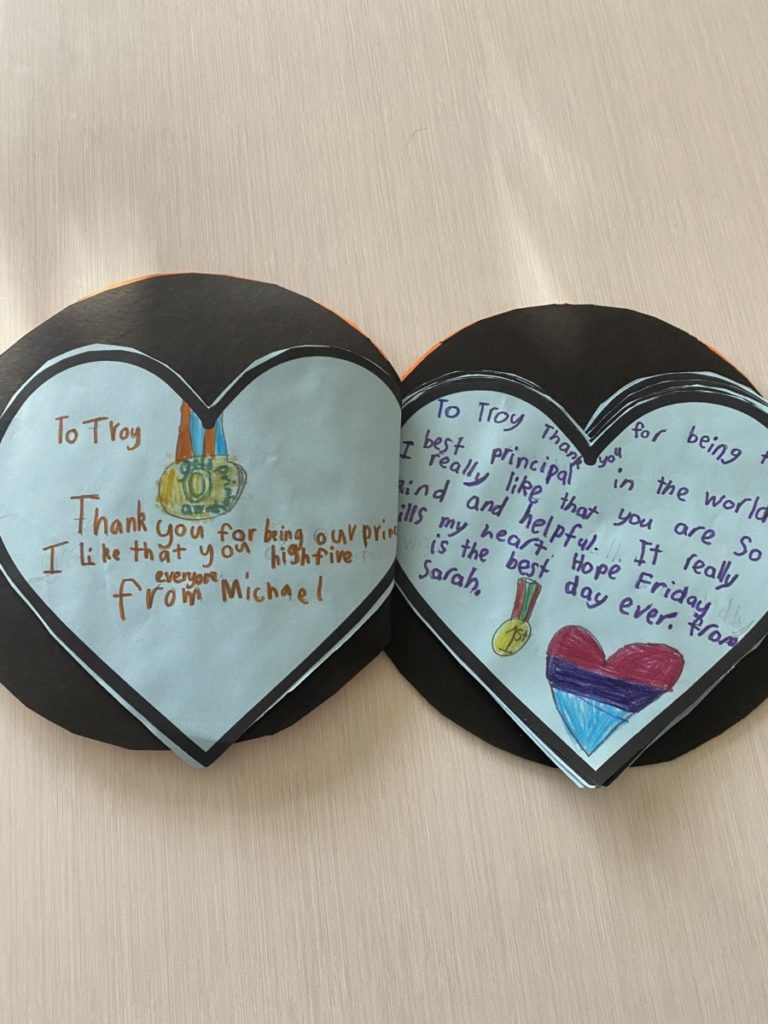 To Troy
Thank you for being our princ
I like that you highfive
everyone
from Michael
To Troy Thank you for being t
best principal in the world
I really like that you are so
kind and helpful. It really
ills my heart. Hope Friday
is the best day ever. from
Sarah.
1st